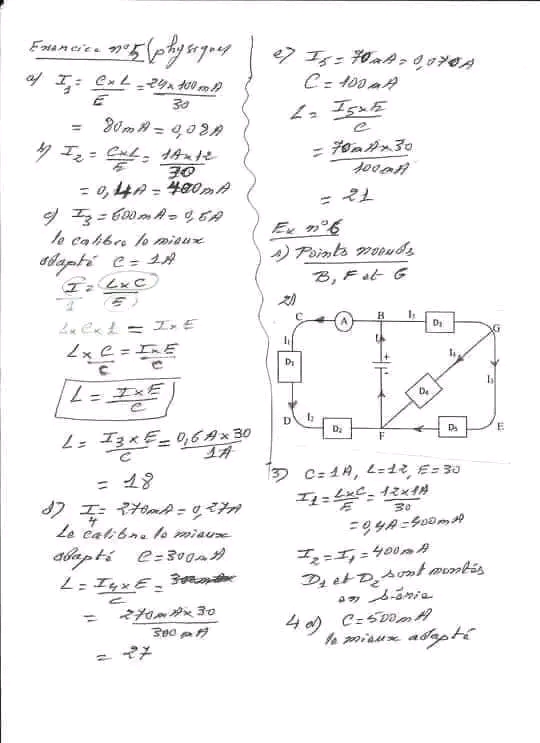 Exercice n°5 (physique)
a) I₁ = C×L/E = 24×100mA/30
= 80mA = 0,08A
b) I₂ = C×L/E = 1A×12/30
= 0,4A = 400mA
c) I₃ = 600mA = 0,6A
le calibre le mieux
adapté C = 1A
I/1 = L×C/E
L×C×1 = I×E
L×C/C = I×E/C
L = I×E/C
L = I₃×E/C = 0,6A×30/1A
= 18
d) I₄ = 270mA = 0,27A
Le calibre le mieux
adapté C = 300mA
L = I₄×E/C =
= 270mA×30/300mA
= 27
e) I₅ = 70mA = 0,070A
C = 100mA
L = I₅×E/C
= 70mA×30/100mA
= 21
Ex n°6
1) Points noeuds
B, F et G
2)
C A B I₃ D₃ G
I₁ I
D₁ + - I₄ D₄ I₅
D I₂ D₂ F D₅ E
3) C = 1A, L = 12, E = 30
I₁ = L×C/E = 12×1A/30
= 0,4A = 400mA
I₂ = I₁ = 400mA
D₁ et D₂ sont montés
en série
4 a) C = 500mA
le mieux adapté